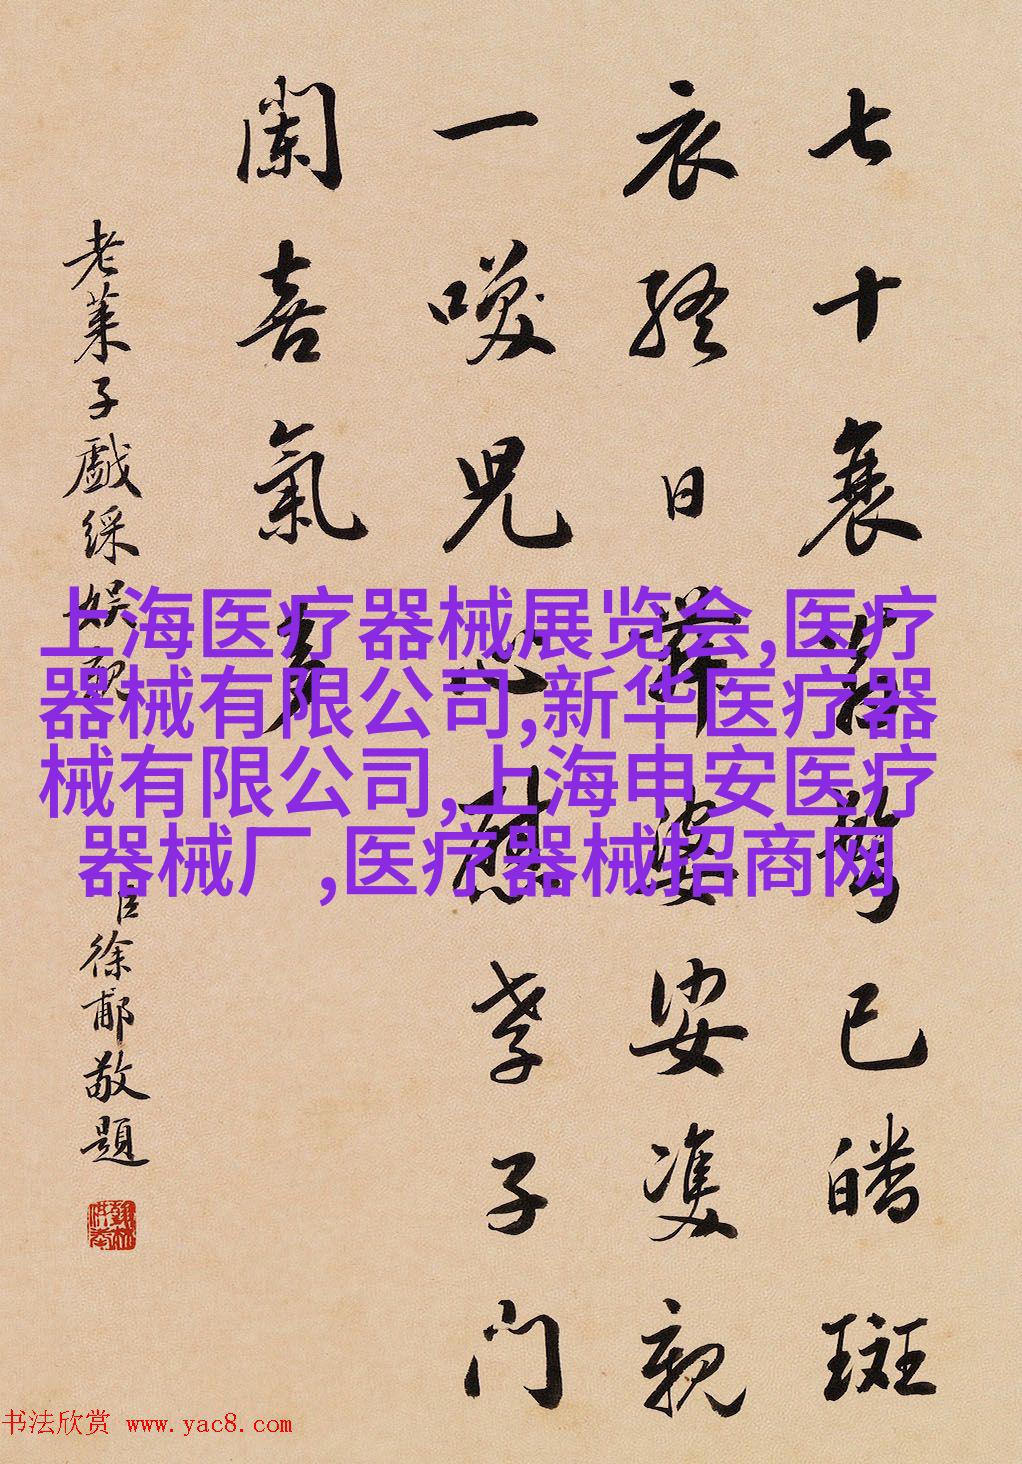 七十衰已皤斑
衣終日舞婆娑雙親
一兒心慰孝子門
闌喜氣多
老萊子戲綵娛親
臣徐郙敬題
上海医疗器械展览会,医疗
器械有限公司,新华医疗器
械有限公司,上海申安医疗
器械厂,医疗器械招商网
书法欣赏 www.yac8.com